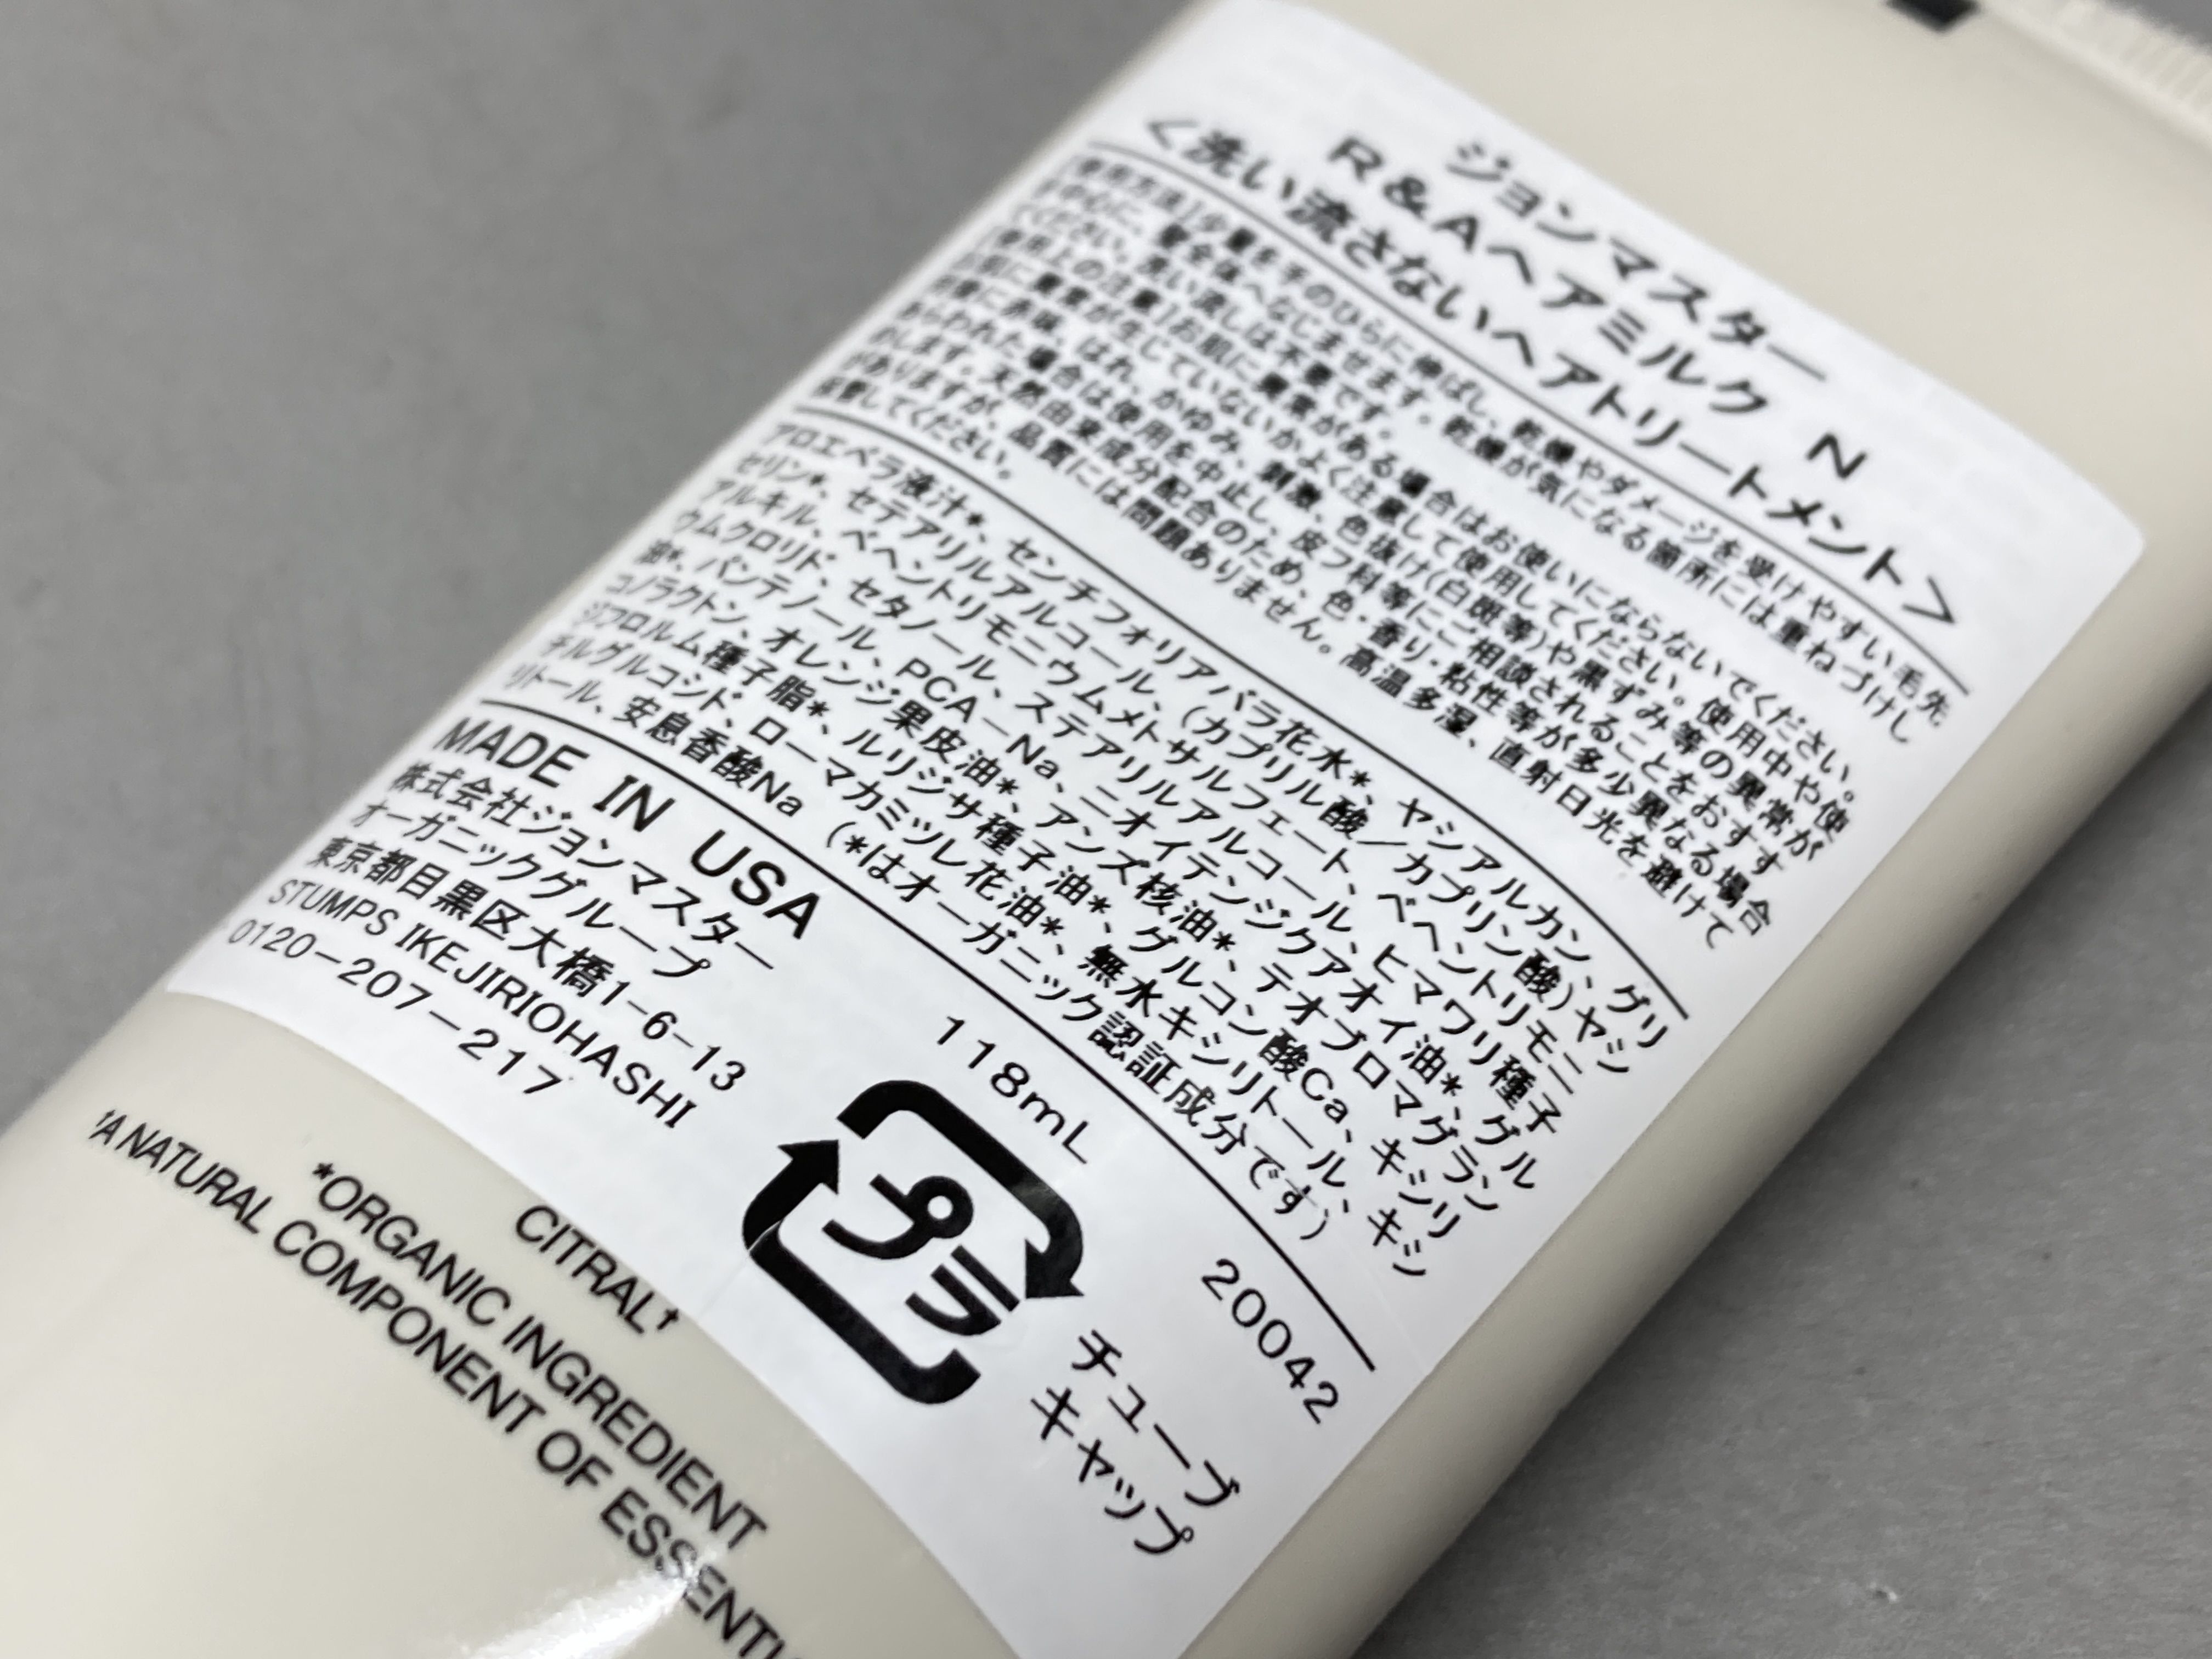 ジョンマスター
R&Aヘアミルク N
<洗い流さないヘアトリートメント>
[使用方法]少量を手のひらに伸ばし、乾燥やダメージを受けやすい毛先
を中心に、髪全体へなじませます。乾燥が気になる箇所には重ねづけし
てください。洗い流しは不要です。
[使用上の注意]お肌に異常がある場合はお使いにならないでください。
お肌に異常が生じていないかよく注意して使用してください。使用中や使
用後に赤味、はれ、かゆみ、刺激、色抜け(白斑等)や黒ずみ等の異常が
あらわれた場合は使用を中止し、皮フ科等にご相談されることをおすす
めします。天然由来成分配合のため、色・香り・粘性等が多少異なる場合
がありますが、品質には問題ありません。高温多湿、直射日光を避けて
保管してください。
アロエベラ液汁*、センチフォリアバラ花水*、ヤシアルカン、グリ
セリン*、セテアリルアルコール、(カプリル酸/カプリン酸)ヤシ
アルキル、ベヘントリモニウムメトサルフェート、ベヘントリモニ
ウムクロリド、セタノール、ステアリルアルコール、ヒマワリ種子
油*、パンテノール、PCA-Na、ニオイテンジクアオイ油*、グル
コノラクトン、オレンジ果皮油*、アンズ核油*、テオブロマグラン
ジフロルム種子脂*、ルリジサ種子油*、グルコン酸Ca、キシリ
チルグルコシド、ローマカミツレ花油*、無水キシリトール、キシ
リトール、安息香酸Na (*はオーガニック認証成分です)
MADE IN USA
株式会社ジョンマスター
オーガニックグループ
東京都目黒区大橋1-6-13
STUMPS IKEJIRIOHASHI
0120-207-217
118mL
20042
プラ
チューブ
キャップ
CITRAL†
*ORGANIC INGREDIENT
†A NATURAL COMPONENT OF ESSENTI